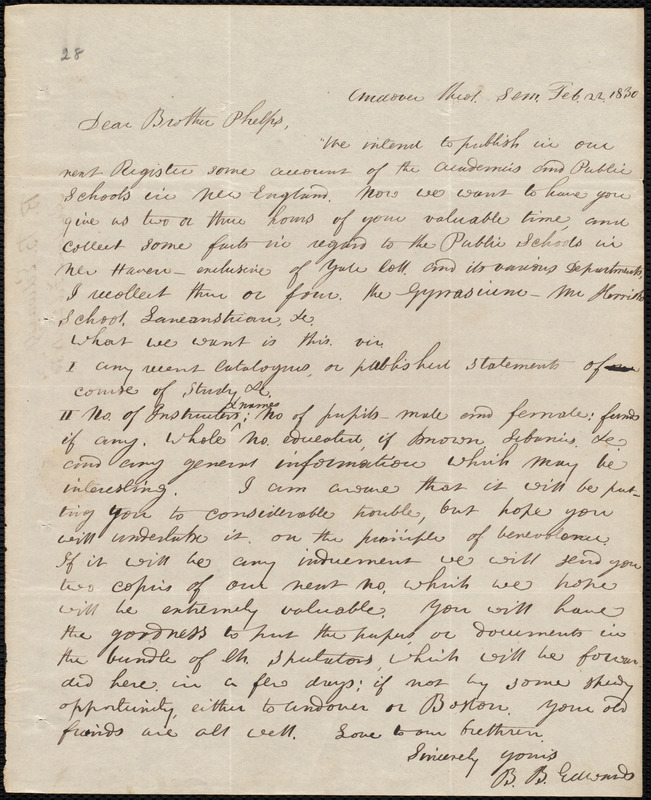 28
Andover Theol. Sem. Feb. 22. 1830
Dear Brother Phelps,
We intend to publish in our
next Register some account of the Academies and Public
Schools in New England. Now we want to have you
give us two or three hours of your valuable time, and
collect some facts in regard to the Public Schools in
New Haven – exclusive of Yale Coll. and its various Departments.
I recollect three or four. the Gymnasium – Mr Herrick's
School, Lancastrian, &c.
What we want is this. viz.
I any recent Catalogues, or published statements of
course of study &c.
II No. of Instructers, & names; No of pupils – male and female; funds
if any. Whole No. educated, if known, Libraries. &c
and any general information which may be
interesting. I am aware that it will be put-
ting you to considerable trouble, but hope you
will undertake it. on the principle of benevolence.
If it will be any inducement we will send you
two copies of our next no. which we hope
will be extremely valuable. You will have
the goodness to put the papers, or documents in
the bundle of Ch. Spectators, which will be forwar
ded here in a few days; if not by some speedy
opportunity, either to Andover or Boston. Your old
friends are all well. Love to our brethren.
Sincerely yours
B. B. Edwards